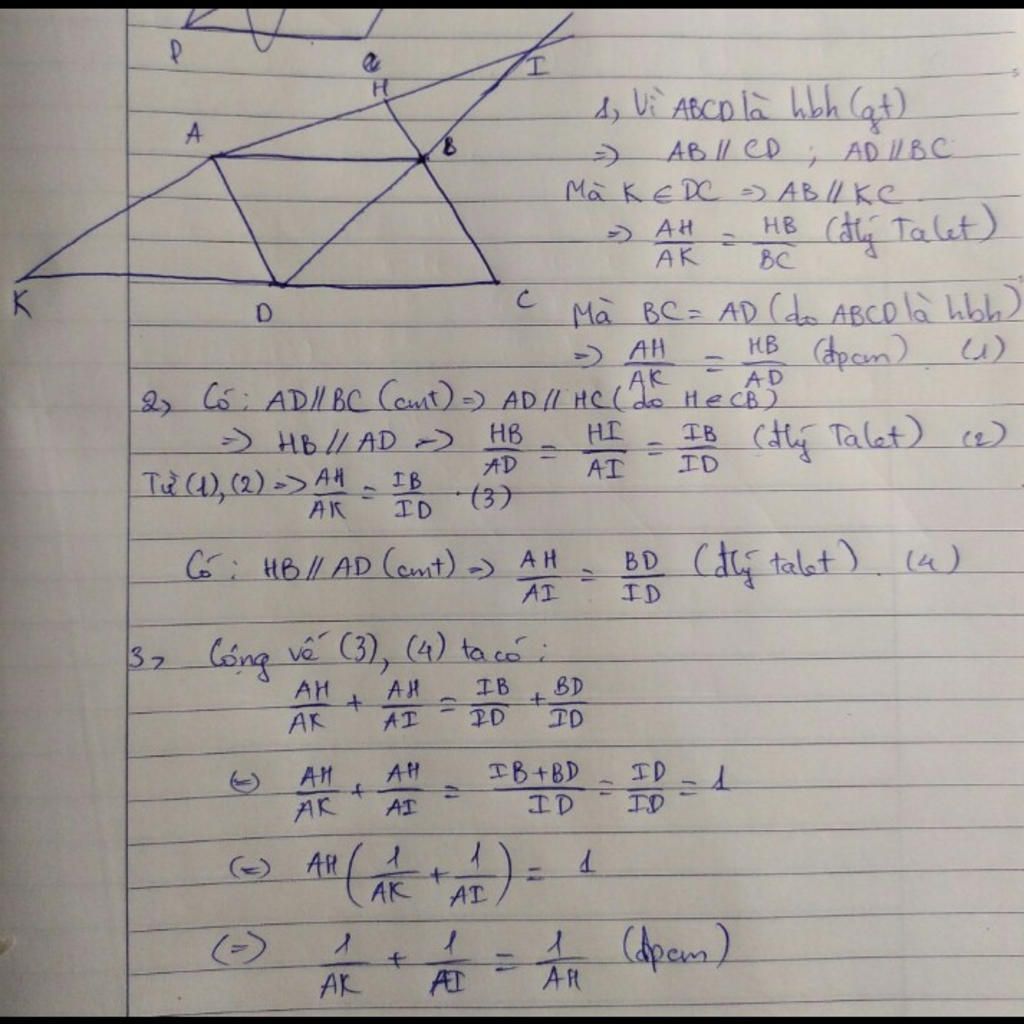 P
Q
H
I
A
B
K
D
C
1, Vì ABCD là hbh (gt)
=> AB // CD ; AD // BC
Mà K ∈ DC => AB // KC
=> AH/AK = HB/BC (đlý Talet)
Mà BC = AD (do ABCD là hbh)
=> AH/AK = HB/AD (đpcm) (1)
2, Có: AD // BC (cmt) => AD // HC (do H ∈ CB)
=> HB // AD => HB/AD = HI/AI = IB/ID (đlý Talet) (2)
Từ (1), (2) => AH/AK = IB/ID . (3)
Có: HB // AD (cmt) => AH/AI = BD/ID (đlý talet). (4)
3, Cộng vế (3), (4) ta có:
AH/AK + AH/AI = IB/ID + BD/ID
(=) AH/AK + AH/AI = IB+BD/ID = ID/ID = 1
(=) AH(1/AK + 1/AI) = 1
(=) 1/AK + 1/AI = 1/AH (đpcm)